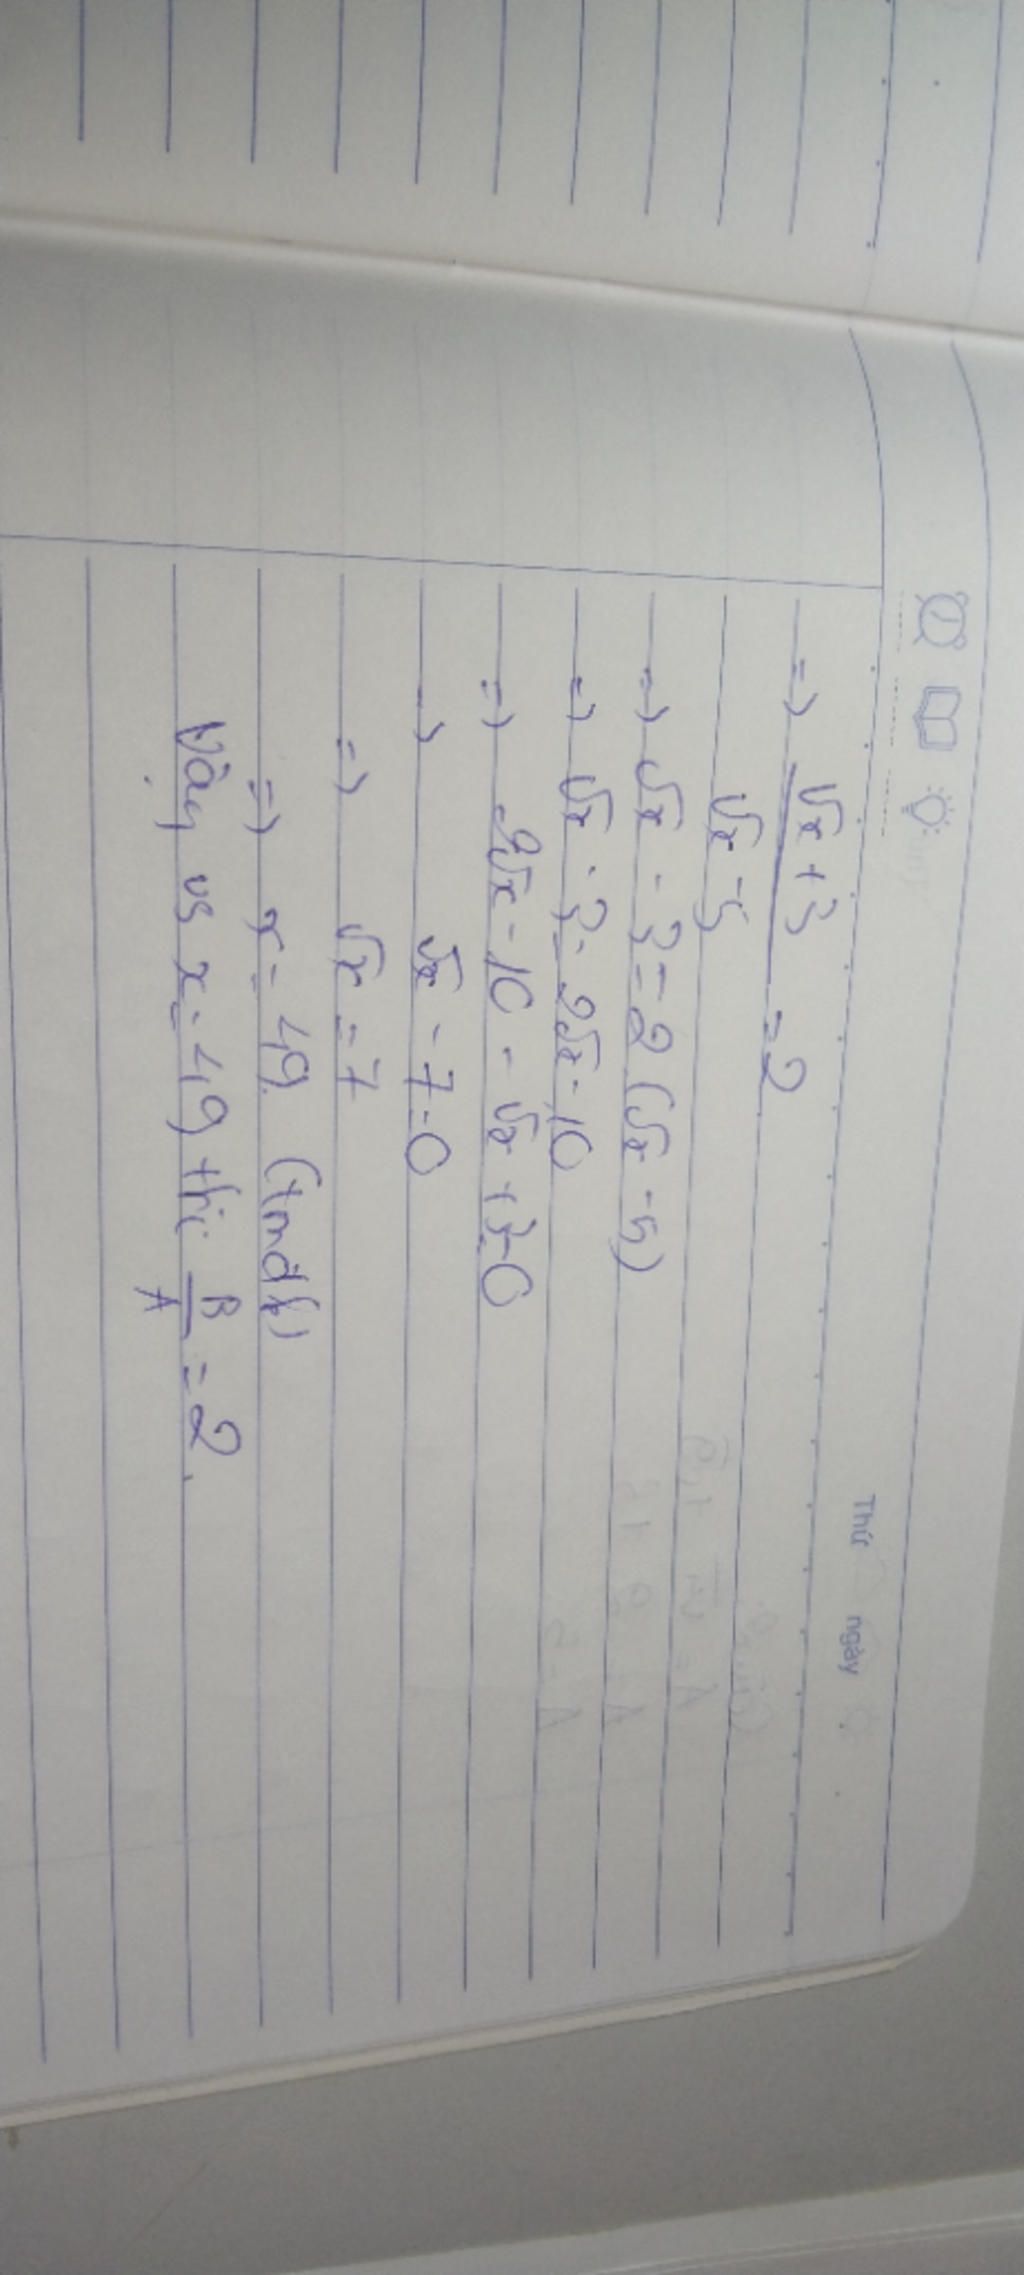 Thứ ngày
=> √x + 3 / √x - 5 = 2
=> √x - 3 = 2 (√x - 5)
=> √x - 3 = 2√x - 10
=> 2√x - 10 - √x + 3 = 0
=> √x - 7 = 0
=> √x = 7
=> x = 49 (tmđk)
Vậy vs x = 49 thì B/A = 2.